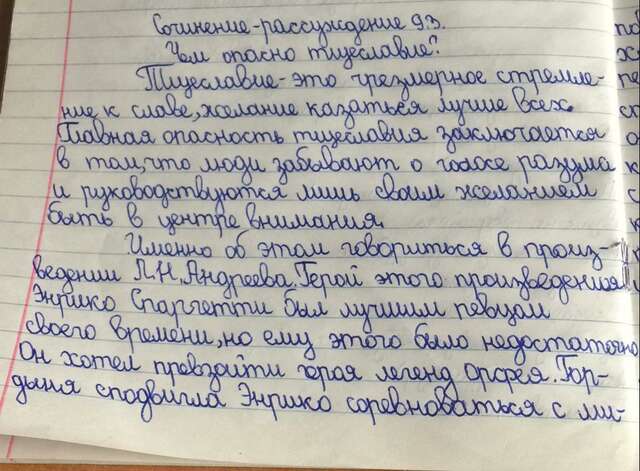 Сочинение-рассуждение 9.3.
Чем опасно тщеславие?
Тщеславие-это чрезмерное стремле-
ние к славе, желание казаться лучше всех.
Главная опасность тщеславия заключается
в том, что люди забывают о голосе разума
и руководствуются лишь своим желанием
быть в центре внимания.
Именно об этом говориться в произ-
ведении Л.Н. Андреева. Герой этого произведения
Энрико Спаргетти был лучшим певцом
своего времени, но ему этого было недостаточно
Он хотел превзойти героя легенд Орфея. Гор-
дыня сподвигла Энрико соревноваться с ми-